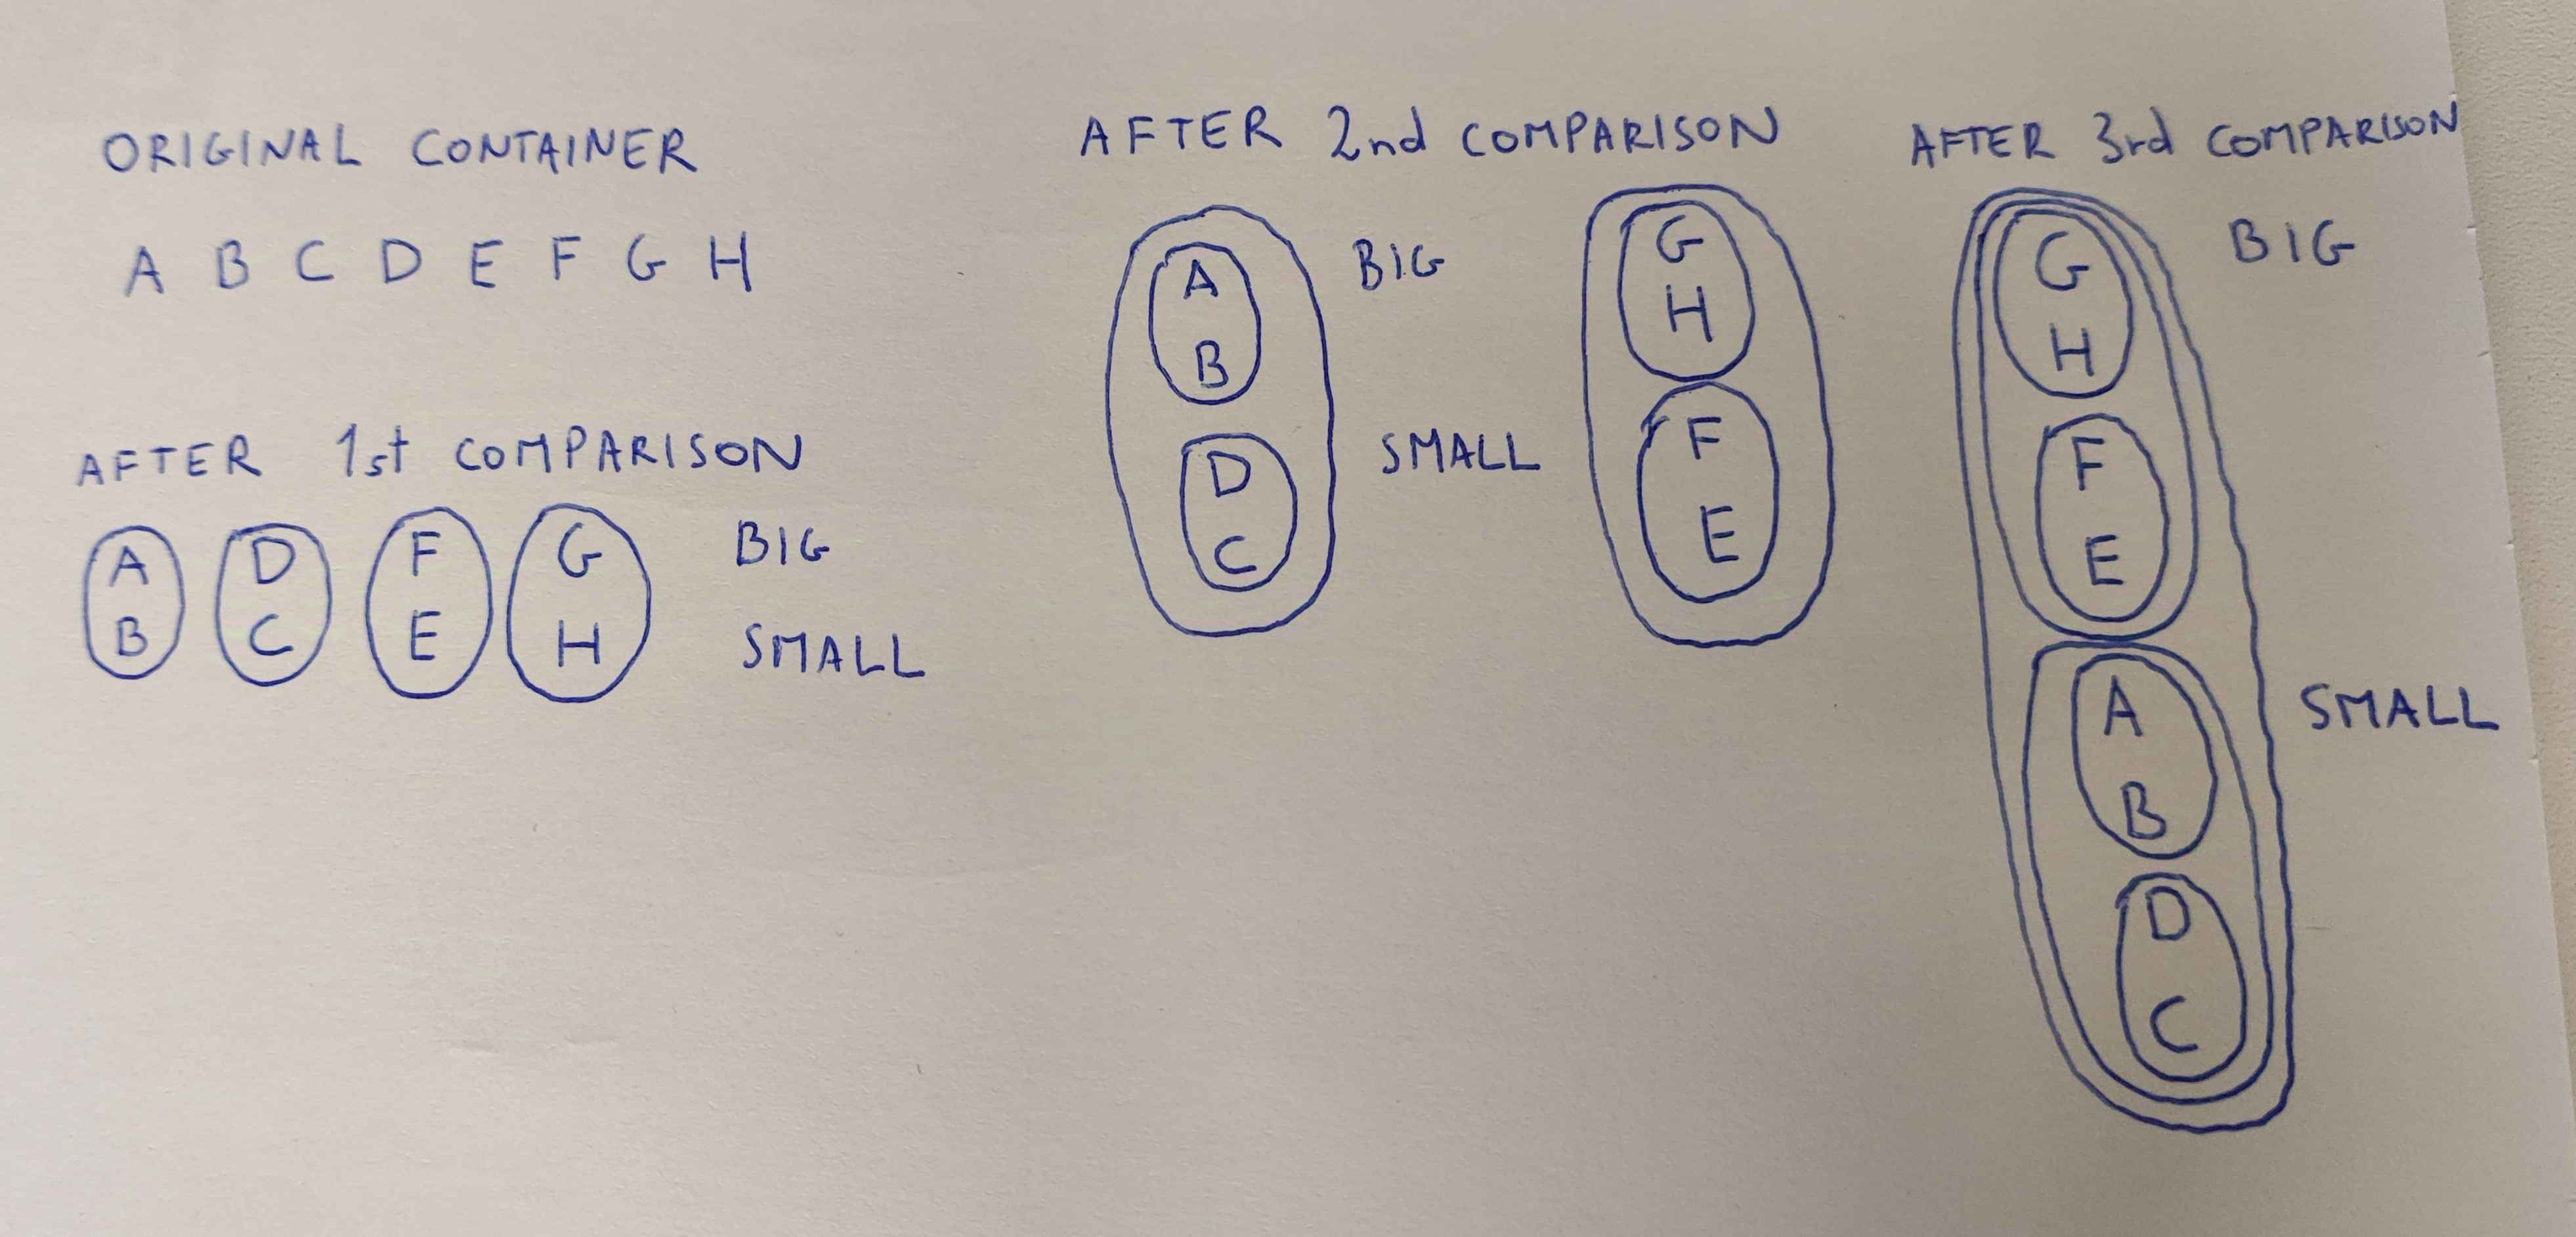 ORIGINAL CONTAINER
A B C D E F G H
AFTER 1st COMPARISON
A D F G BIG
B C E H SMALL
AFTER 2nd COMPARISON
A BIG G
B H
D SMALL F
C E
AFTER 3rd COMPARISON
G BIG
H
F
E
A SMALL
B
D
C